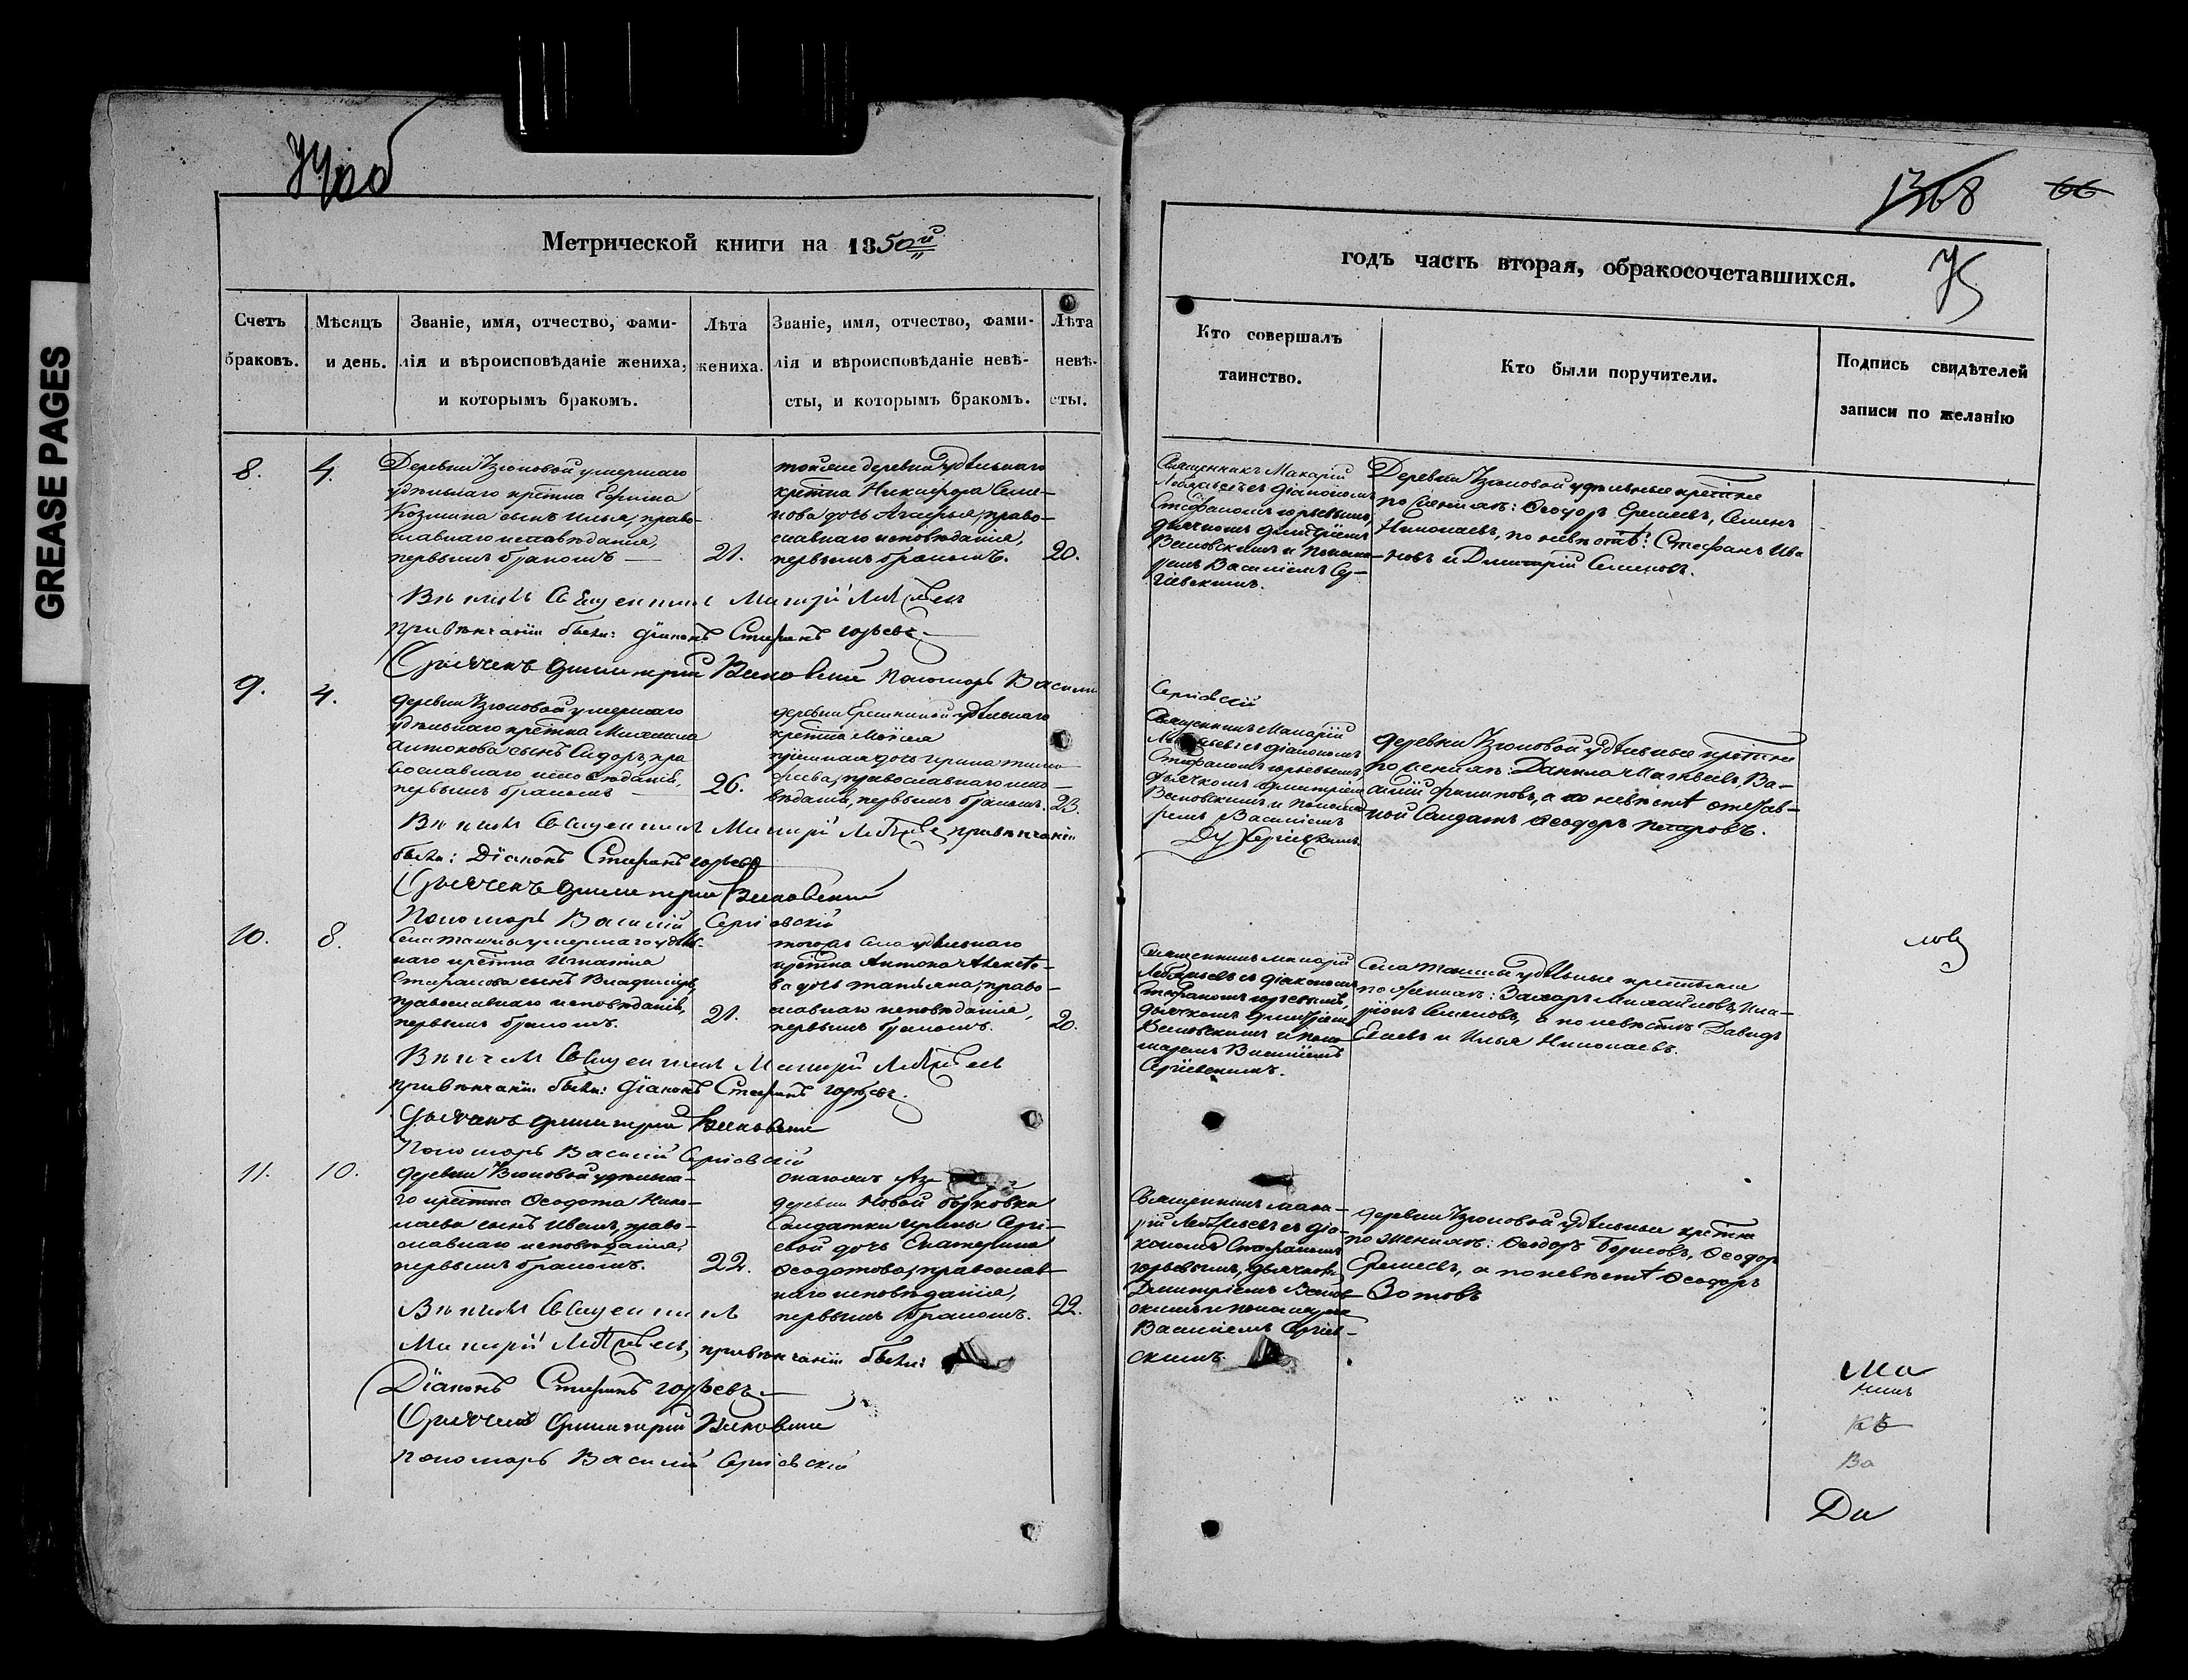 GREASE PAGES
Метрической книги на 1850й
Счетъ браковъ.
Мѣсяцъ и день.
Званіе, имя, отчество, фами-
лія и вѣроисповѣданіе жениха,
и которымъ бракомъ.
Лѣта жениха.
Званіе, имя, отчество, фами-
лія и вѣроисповѣданіе невѣ-
сты, и которымъ бракомъ.
Лѣта невѣ-
сты.
8.
4.
Деревни Узюковой умершаго
удѣльнаго крестна
Козмина сынъ Илья, право-
славнаго исповѣданія,
первымъ бракомъ
21.
тойже деревни удѣльнаго
крестна Никифора Семе-
нова дочь право-
славнаго исповѣданія,
первымъ бракомъ.
20.
Священникъ Макарій
при вѣнчаніи были: Діаконъ Стефанъ Юрьевъ
Дьячекъ Димитрій Пономарь Васили
9.
4.
деревни Узюковой умершаго
удѣльнаго крестна Михаила
Антонова сынъ Сидоръ, пра
вославнаго исповѣданія,
первымъ бракомъ
26.
деревни удѣльнаго
крестна Моѵсея
пріемная дочь Ирина Тимо
феева, православнаго испо-
вѣданія, первымъ бракомъ.
23.
Священникъ Макарій при вѣнчаніи
были: Діаконъ Стефанъ Юрьевъ
Дьячекъ Димитрій
Пономарь Василій Сергіевскій
10.
8.
Села Ташлы умершаго удѣль-
наго крестна Игнатія
Стефанова сынъ Владиміръ,
православнаго исповѣданія,
первымъ бракомъ.
21.
тогожъ села удѣльнаго
крестна Антона Алексѣе-
ва дочь Татьяна, право-
славнаго исповѣданія,
первымъ бракомъ.
20.
Священникъ Макарій
при вѣнчаніи были: Діаконъ Стефанъ Юрьевъ.
Дьячекъ Димитрій
Пономарь Василій Сергіевскій
11.
10.
деревни Узюковой удѣльна-
го крестна Ѳеодота Нико-
лаева сынъ Иванъ, право-
славнаго исповѣданія,
первымъ бракомъ.
22.
деревни Новой Борковки
Солдатки Ирины Серги-
евой дочь Екатерина
Ѳеодотова, православ-
наго исповѣданія,
первымъ бракомъ.
22.
Священникъ
Макарій при вѣнчаніи были:
Діаконъ Стефанъ Юрьевъ
Дьячекъ Димитрій
Пономарь Василій Сергіевскій
66
75
годъ часть вторая, обракосочетавшихся.
Кто совершалъ
таинство.
Кто были поручители.
Подпись свидѣтелей
записи по желанію
Священникъ Макарій
съ діакономъ
Стефаномъ Юрьевымъ,
дьячкомъ Димитріемъ
и понома-
ремъ Василіемъ Сер-
гіевскимъ.
Деревни Узюковой удѣльные крестне
по женихѣ: Ѳеодоръ Еремеевъ, Семенъ
Николаевъ, по невѣстѣ: Стефанъ Ива
новъ и Димитрій Семеновъ.
Сергіевскій
Священникъ Макарій
съ діакономъ
Стефаномъ Юрьевымъ,
дьячкомъ Димитріемъ
и понома
ремъ Василіемъ
Сергіевскимъ.
деревни Узюковой удѣльные крестне
по женихѣ: Данила Матвеевъ, Ва-
силій Филиповъ, а по невѣстѣ отстав-
ной Солдатъ Ѳеодоръ Петровъ.
Священникъ Макарій
съ діакономъ
Стефаномъ Юрьевымъ,
дьячкомъ Димитріемъ
и поно
маремъ Василіемъ
Сергіевскимъ.
Села Ташлы удѣльные крестьяне
по женихѣ: Захаръ Михайловъ, Ила-
ріонъ Семеновъ, а по невѣстѣ Давидъ
и Илья Николаевъ.
Священникъ Мака-
рій съ діа-
кономъ Стефаномъ
Юрьевымъ, дьячкомъ
Димитріемъ
и пономаремъ
Василіемъ Сергіев-
скимъ.
деревни Узюковой удѣльные крестне
по женихѣ: Ѳеодоръ Борисовъ, Ѳеодоръ
Еремеевъ, а по невѣстѣ Ѳеодоръ
Зотовъ
Ма
Ва
Ди